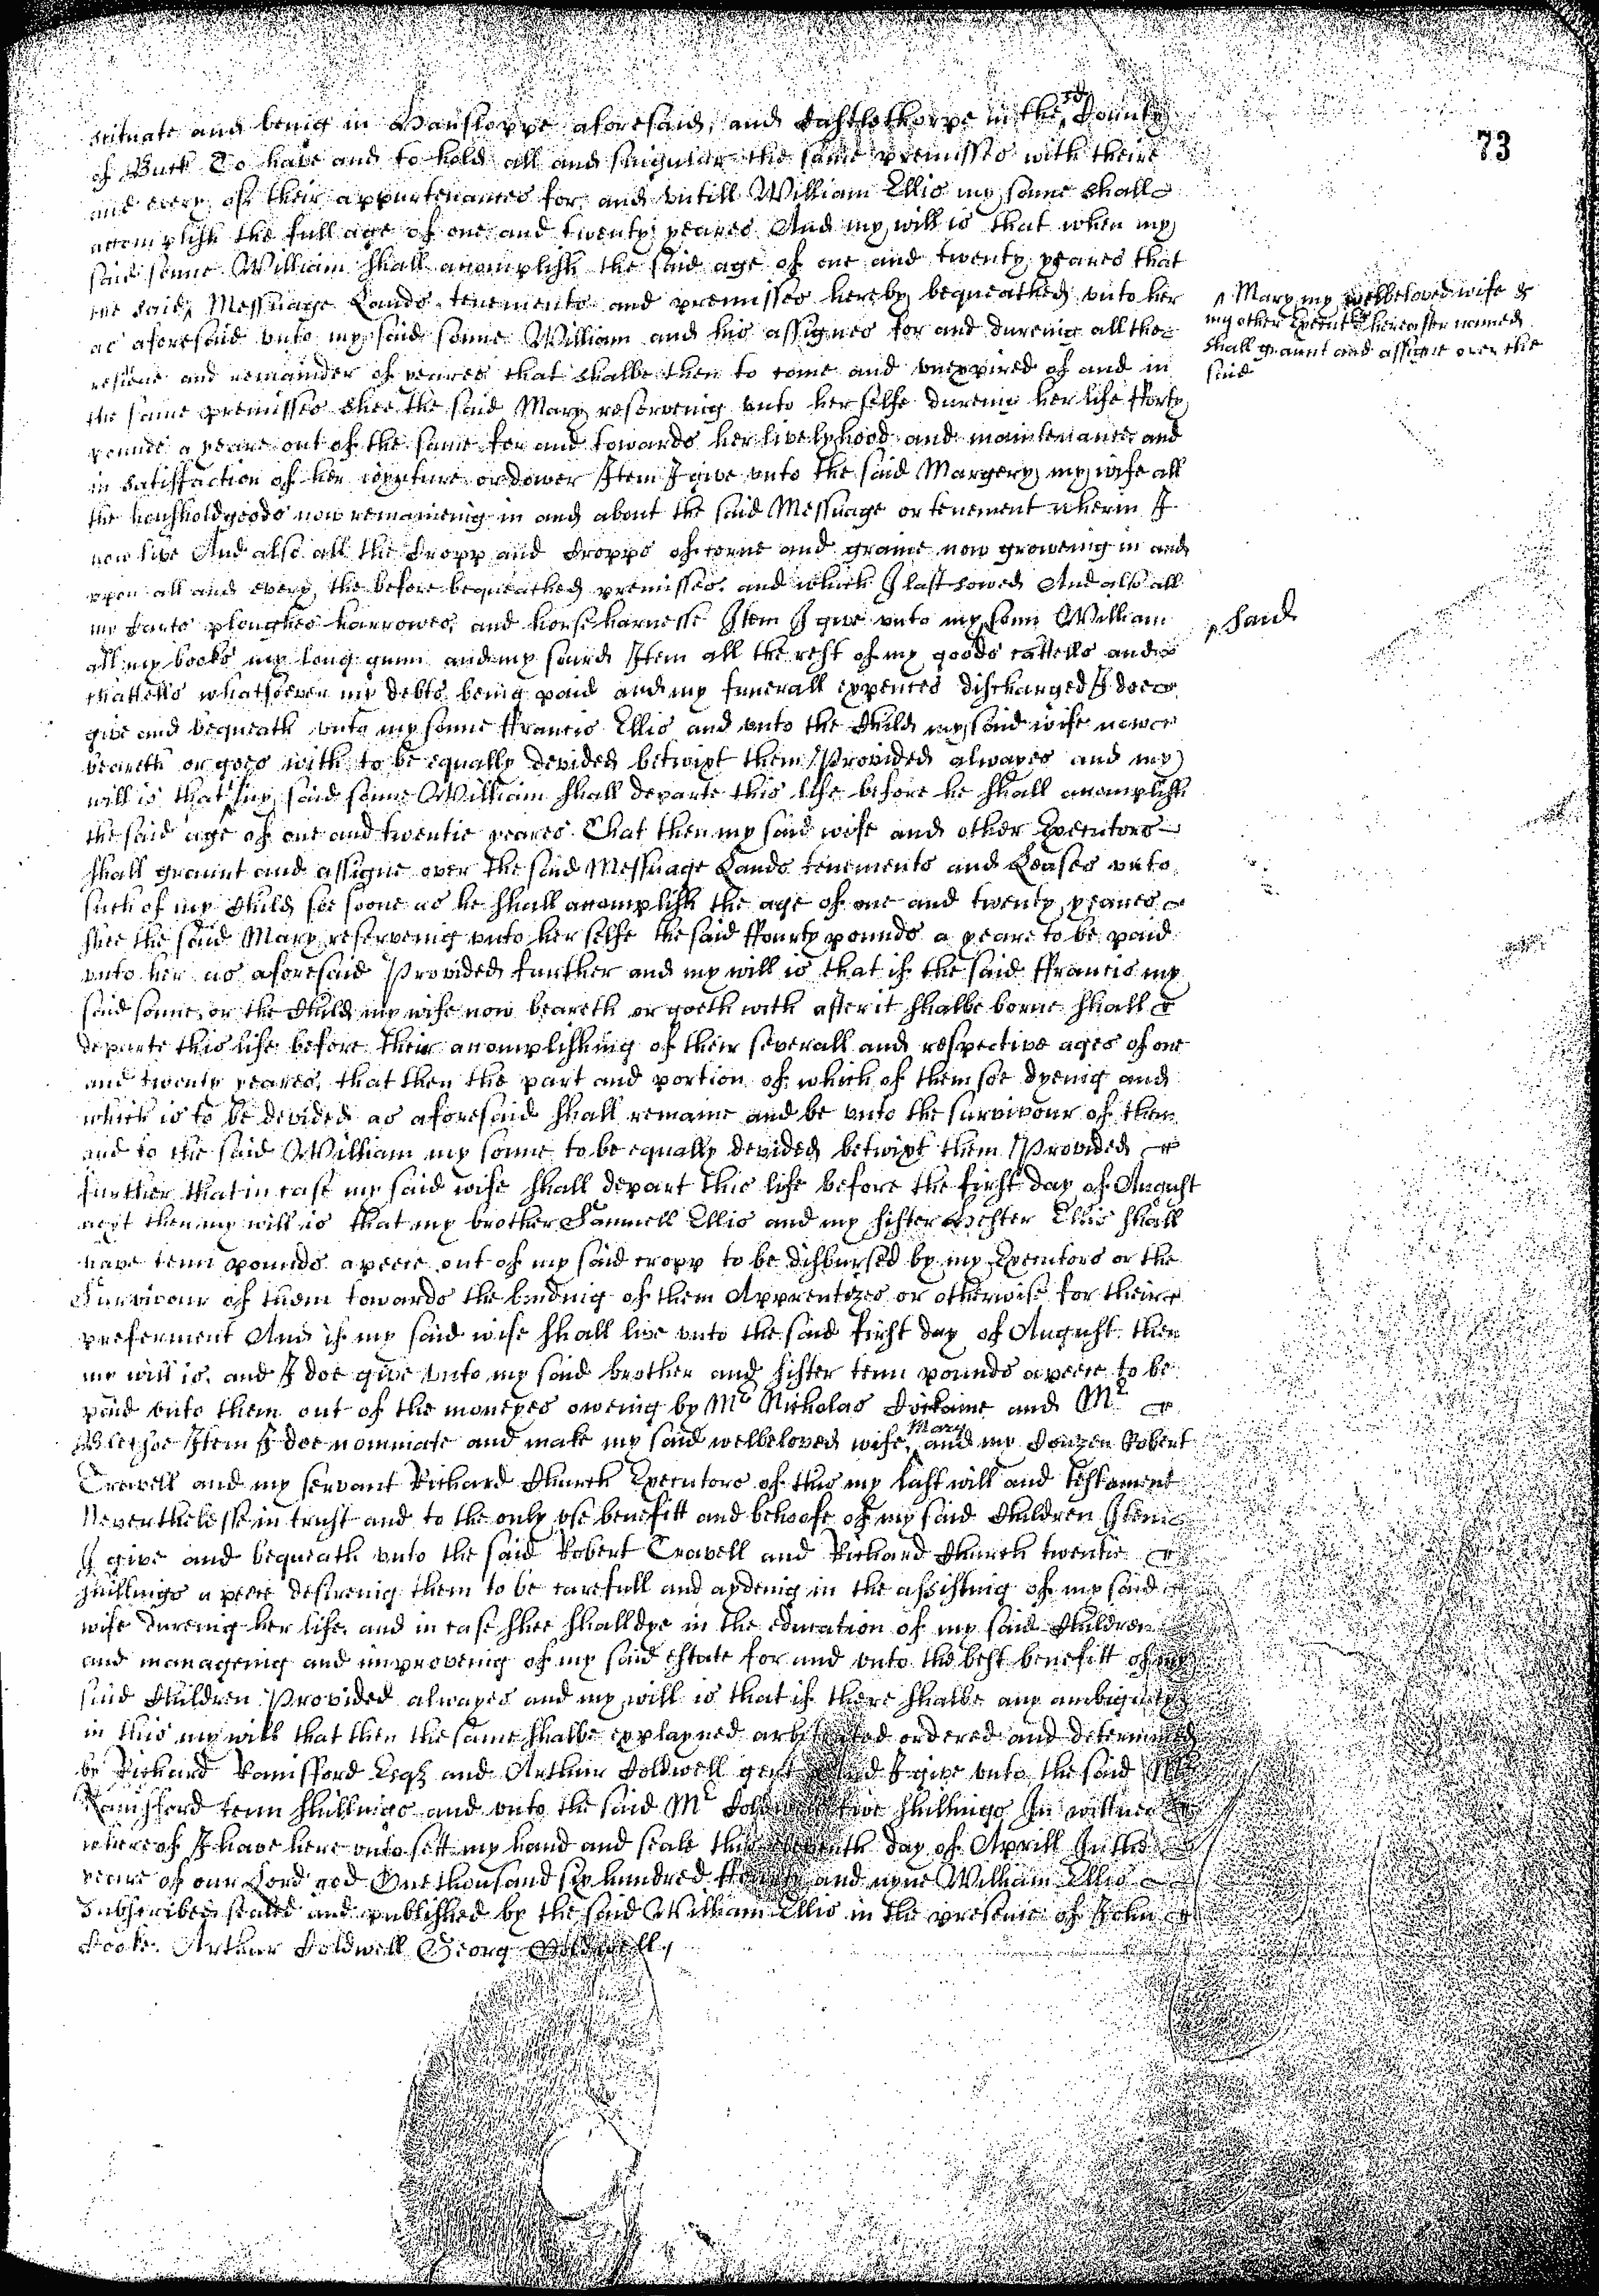 73
scituate and being in Hansloppe aforesaid, and Castlethorpe in the sd County
of Buck To have and to hold all and singular the same premisses with theire
and every of their appurtenances for and vntill William Ellis my sonne shall
accomplish the full age of one and twenty yeares And my will is that when my
said sonne William shall accomplish the said age of one and twenty yeares that
the said Messuage Lands tenements and premisses hereby bequeathed vnto her
^ Mary my welbeloved wife &
my other Executrs hereafter named
shall graunt and assigne over the
said
as aforesaid vnto my said sonne William and his assignes for and dureing all the
residue and remainder of yeares that shalbe then to come and vnexpired of and in
the same premisses shee the said Mary reserveing vnto her selfe dureing her life fforty
pounds a yeare out of the same for and towards her livelyhood and maintenance and
in satisfaction of her ioynture or dower Item I give vnto the said Margery my wife all
the houshold goods now remaineing in and about the said Messuage or tenement wherin I
now live And also all the Cropp and Cropps of corne and graine now groweing in and
vpon all and every the before bequeathed premisses and which I last sowed And also all
my Carts ploughes harrowes, and horse harnesse Item I give vnto my sonn William
^ said
all my books my long gunn and my sword Item all the rest of my goods cattells and
chattells whatsoever my debts being paid and my funerall expences discharged I doe
give and bequeath vnto my sonne ffrancis Ellis and vnto the Child my said wife now
beareth or goes with to be equally devided betwixt them Provided alwayes and my
will is that my said sonne William shall departe this life before he shall accomplish
the said age of one and twentie yeares That then my said wife and other Executors
shall graunt and assigne over the said Messuage Lands tenements and Leases vnto
such of my Child soe soone as he shall accomplish the age of one and twenty yeares
shee the said Mary reserveing vnto her selfe the said ffourty pounds a yeare to be paid
vnto her as aforesaid Provided further and my will is that if the said ffrancis my
said sonne, or the Child my wife now beareth or goeth with after it shalbe borne shall
departe this life before their accomplishing of their severall and respective ages of one
and twenty yeares, that then the part and portion of which of them soe dyeing and
which is to be devided as aforesaid shall remaine and be vnto the survivour of them
and to the said William my sonne to be equally devided betwixt them Provided
further that in case my said wife shall depart this life before the first day of August
next then my will is that my brother Samuell Ellis and my sister Hester Ellis shall
have tenn pounds apeece out of my said cropp to be disbursed by my Executors or the
Survivour of them towards the binding of them Apprentizes or otherwise for their
preferment And if my said wife shall live vnto the said first day of August then
my will is, and I doe give vnto my said brother and sister tenn pounds apeece to be
paid vnto them out of the moneyes oweing by Mr Nicholas Cockaine and Mr
Item I doe nominate and make my said welbeloved wife Mary and my Couzen Robert
Travell and my servant Richard Church Executors of this my last will and testament
Neverthelesse in trust and to the only vse benefitt and behoofe of my said Children Item
I give and bequeath vnto the said Robert Travell and Richard Church twentie
shillings apeece desireing them to be carefull and aydeing in the assisting of my said
wife dureing her life, and in case shee shall dye in the education of my said Children
and manageing and improveing of my said estate for and vnto the best benefitt of my
said Children Provided alwayes and my will is that if there shalbe any ambiguity
in this my will that then the same shalbe explayned arbitrated ordered and determined
by Richard Rainsford Esqr and Arthur Coldwell gent And I give vnto the said Mr
Rainsford tenn shillings and vnto the said Mr Coldwell five shillings In wittnes
whereof I have here vnto sett my hand and seale this day of Aprill In the
yeare of our Lord god One thousand six hundred and nyne William Ellis
Subscribed sealed and published by the said William Ellis in the presence of John
Cooke. Arthur Coldwell Georg Coldwell,